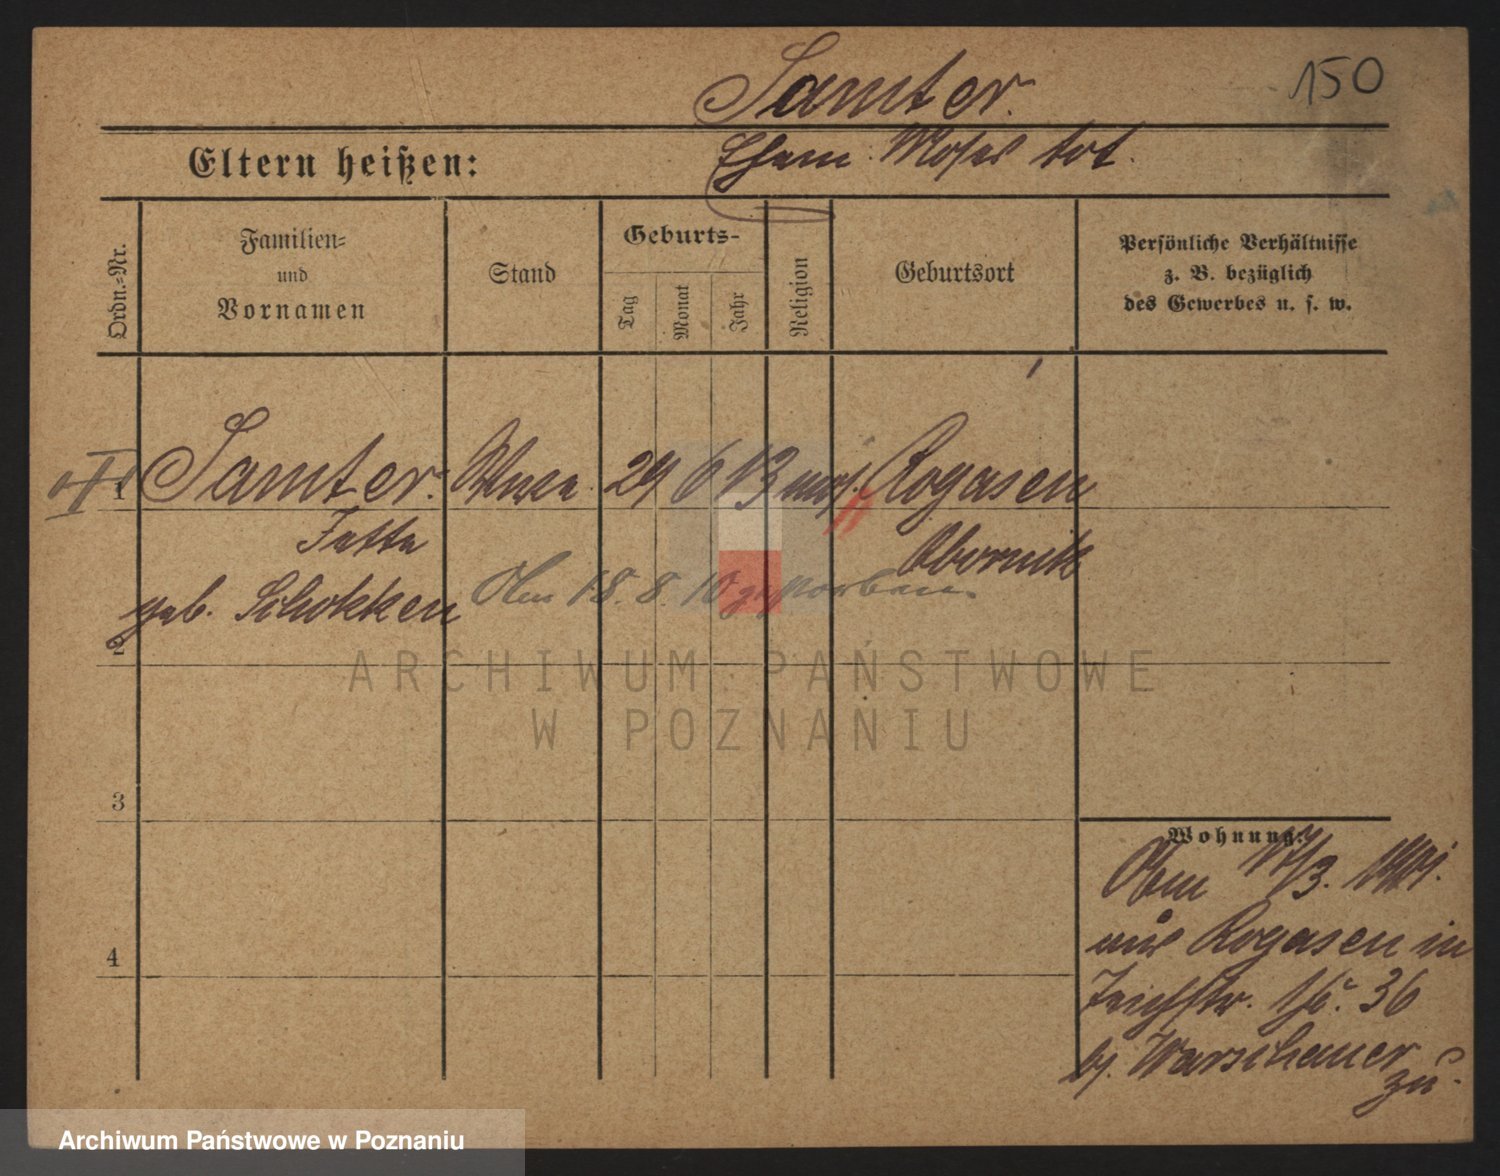 Samter.
150
Eltern heißen:
Ehem. Moses tot.
Ordn.-Nr.
Familien-
und
Vornamen
Stand
Geburts-
Tag
Monat
Jahr
Religion
Geburtsort
Persönliche Verhältnisse
z. B. bezüglich
des Gewerbes u. s. w.
1
Samter. Wwe. 24 6 13 mos. Rogasen
Jette
Obornik
geb. Schokken
Am 18. 8. 10 gestorben.
2
ARCHIWUM PAŃSTWOWE
W POZNANIU
3
Wohnung:
Am 17/3. 1901.
aus Rogasen in
Teichstr. 36
bj. Warschauer
zu.
4
Archiwum Państwowe w Poznaniu